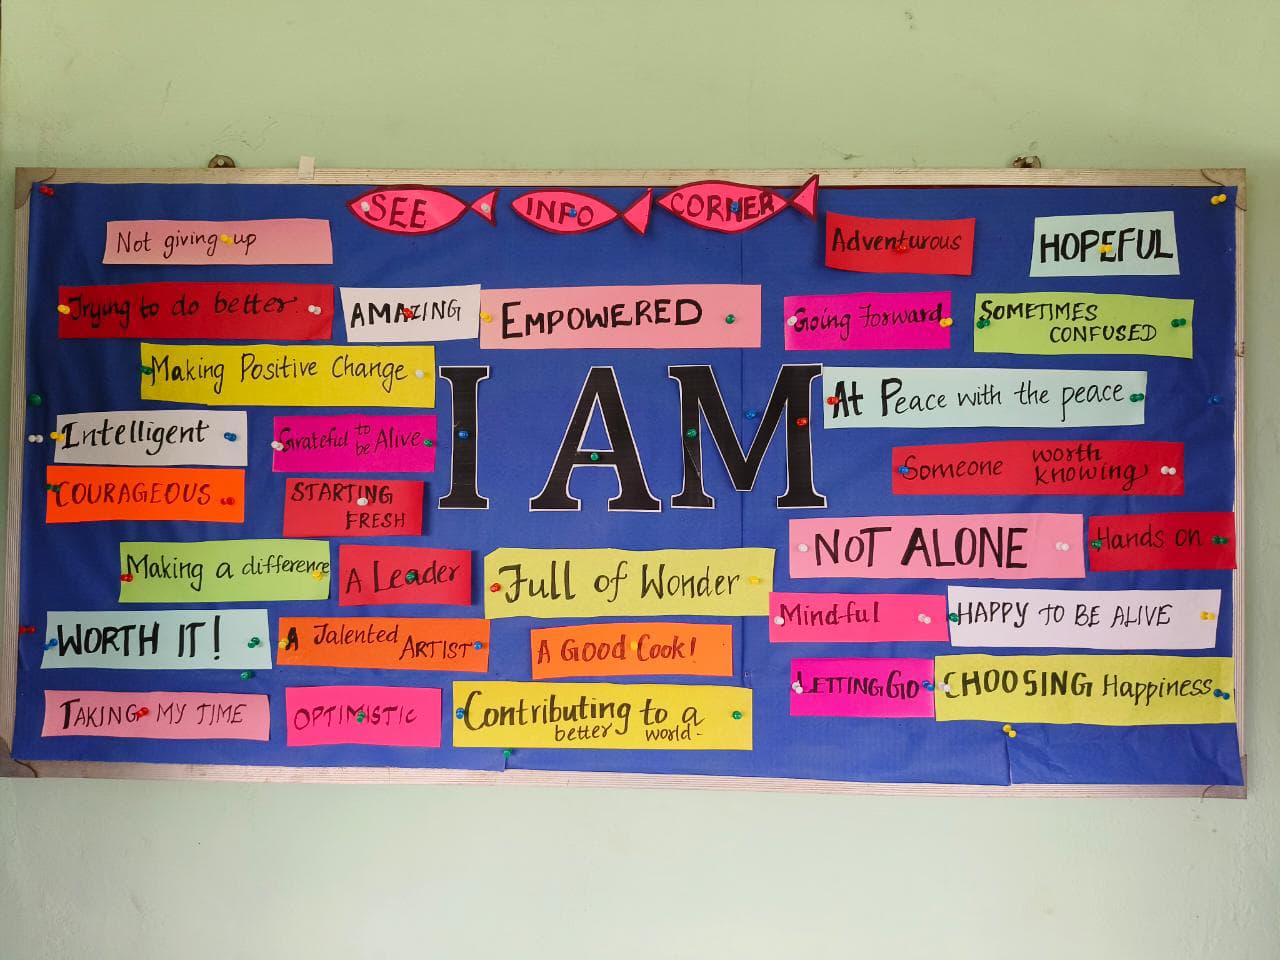 SEE INFO CORNER
Not giving up
Adventurous
HOPEFUL
Trying to do better.
AMAZING
EMPOWERED
Going Forward
SOMETIMES
CONFUSED
Making Positive Change
I AM
At Peace with the peace
Intelligent
Grateful to
be Alive
Someone worth
knowing
COURAGEOUS
STARTING
FRESH
NOT ALONE
Hands on
Making a difference
A Leader
Full of Wonder
Mindful
HAPPY TO BE ALIVE
WORTH IT!
A Talented
ARTIST
A Good Cook!
LETTING GO
CHOOSING Happiness
TAKING MY TIME
OPTIMISTIC
Contributing to a
better world-